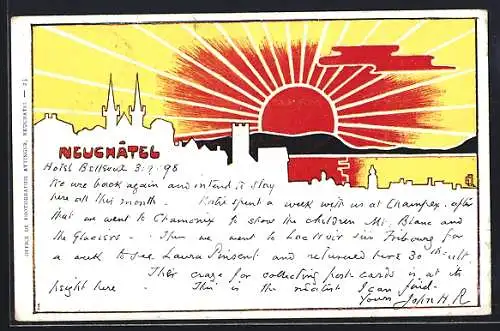 NEUCHÂTEL
Hotel Bellevue 3.9.98
We are back again and intend to stay
here all this month - Katie spent a week with us at Champex. after
that we went to Chamonix to show the children Mt. Blanc and
the Glaciers - Then we went to Lac Noir Fribourg for
a week to see Laura Pinsent and returned here 30th ult.
This craze for collecting post-cards is at its
height here - This is the nicest I can find -
Yours John H. R
OFFICE DE PHOTOGRAPHIE ATTINGER, NEUCHATEL